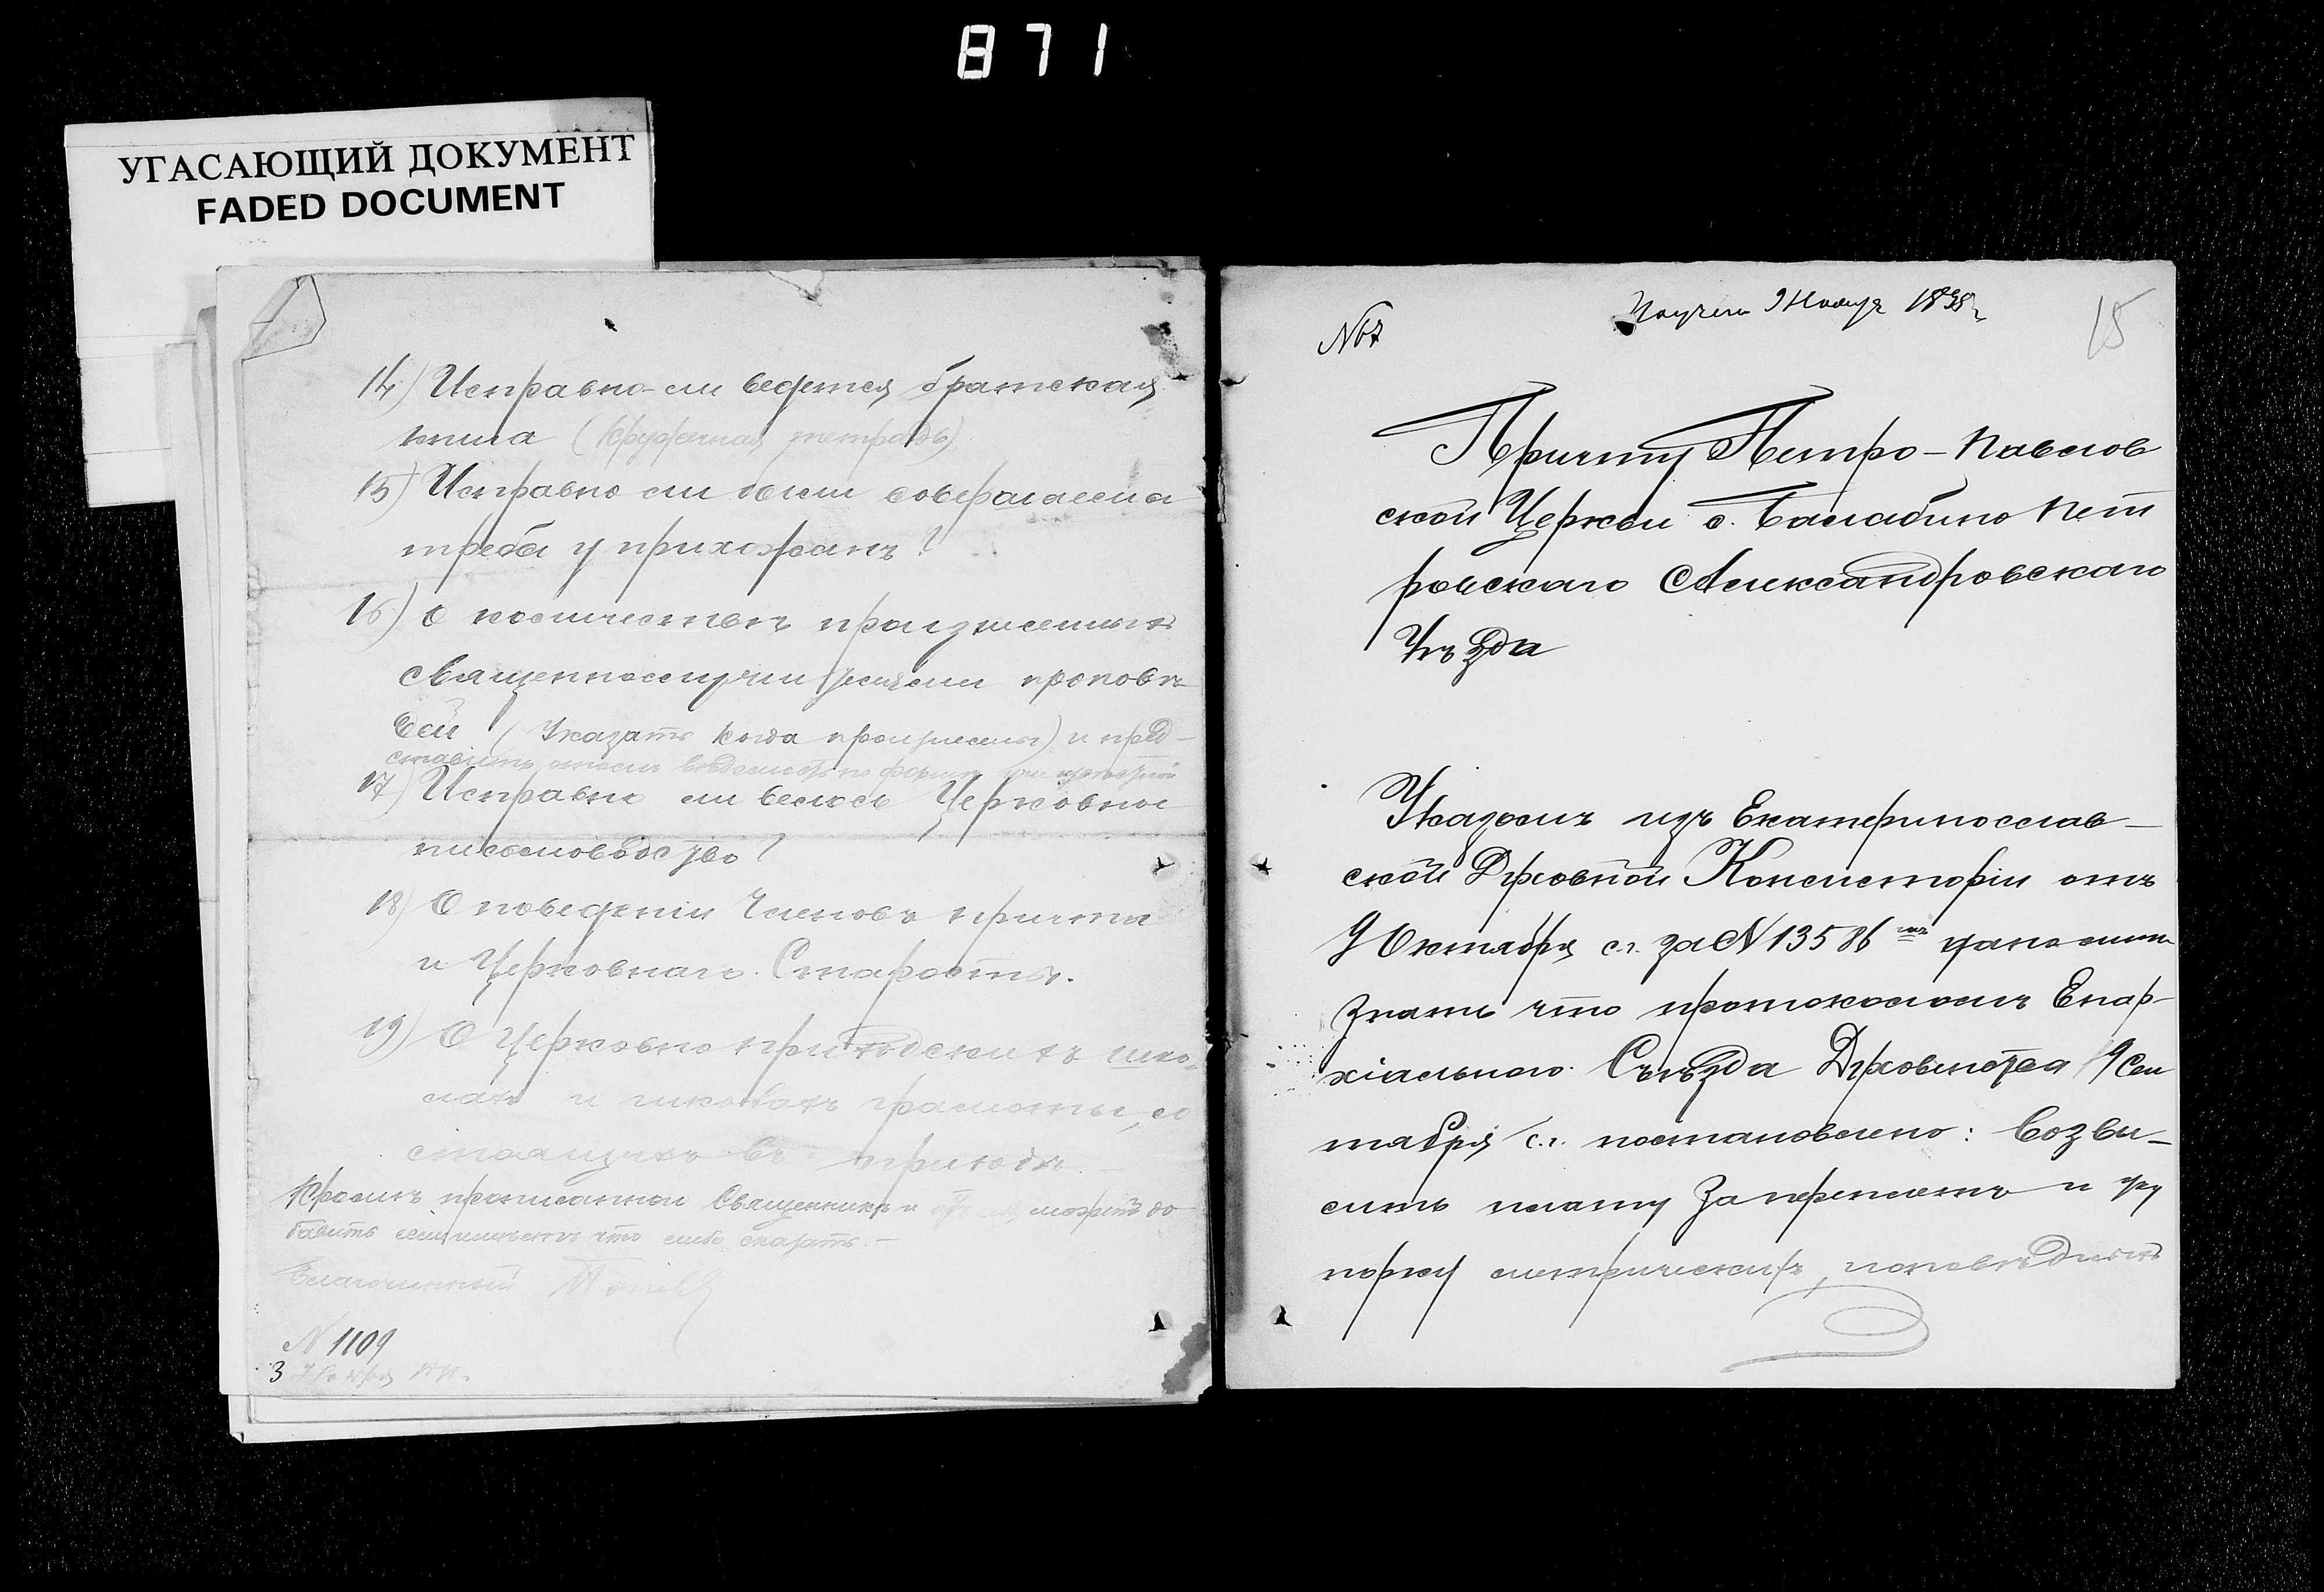 871
УГАСАЮЩИЙ ДОКУМЕНТ
FADED DOCUMENT
14) Исправно-ли ведется братская
книга (кружечная тетрадь)
15) Исправно ли были совершаемы
требы у прихожанъ?
16) О количествѣ произнесенныхъ
священнослужителями проповѣ-
дей (Указать когда произнесены) и пред-
ставить вѣдомость по формѣ
17) Исправно ли велось Церковное
письмоводство?
18) О поведеніи Членовъ причта
и Церковнаго Старосты.
19) О Церковно приходскихъ шко-
лахъ и школахъ грамоты, со
стоящихъ въ приходѣ.
Кромѣ прописанной Священникъ и можетъ до
бавить если что либо сказать.-
Благочинный Попов
N 1109
3
№67
Получен 9 Ноября 1898 г.
15
Причту Петро-Павлов
ской Церкви с. Балабино Пет
ровскаго Александровскаго
Уѣзда
Указомъ изъ Екатеринослав-
ской Духовной Консисторіи отъ
9 Октября с.г. за N 13586
знать что протоколомъ Епар-
хіальнаго Съѣзда Духовенства 9 Сен
тября с.г. постановлено: Возвы-
сить плату за переплетъ и уку
порку метрическихъ, исповѣдныхъ